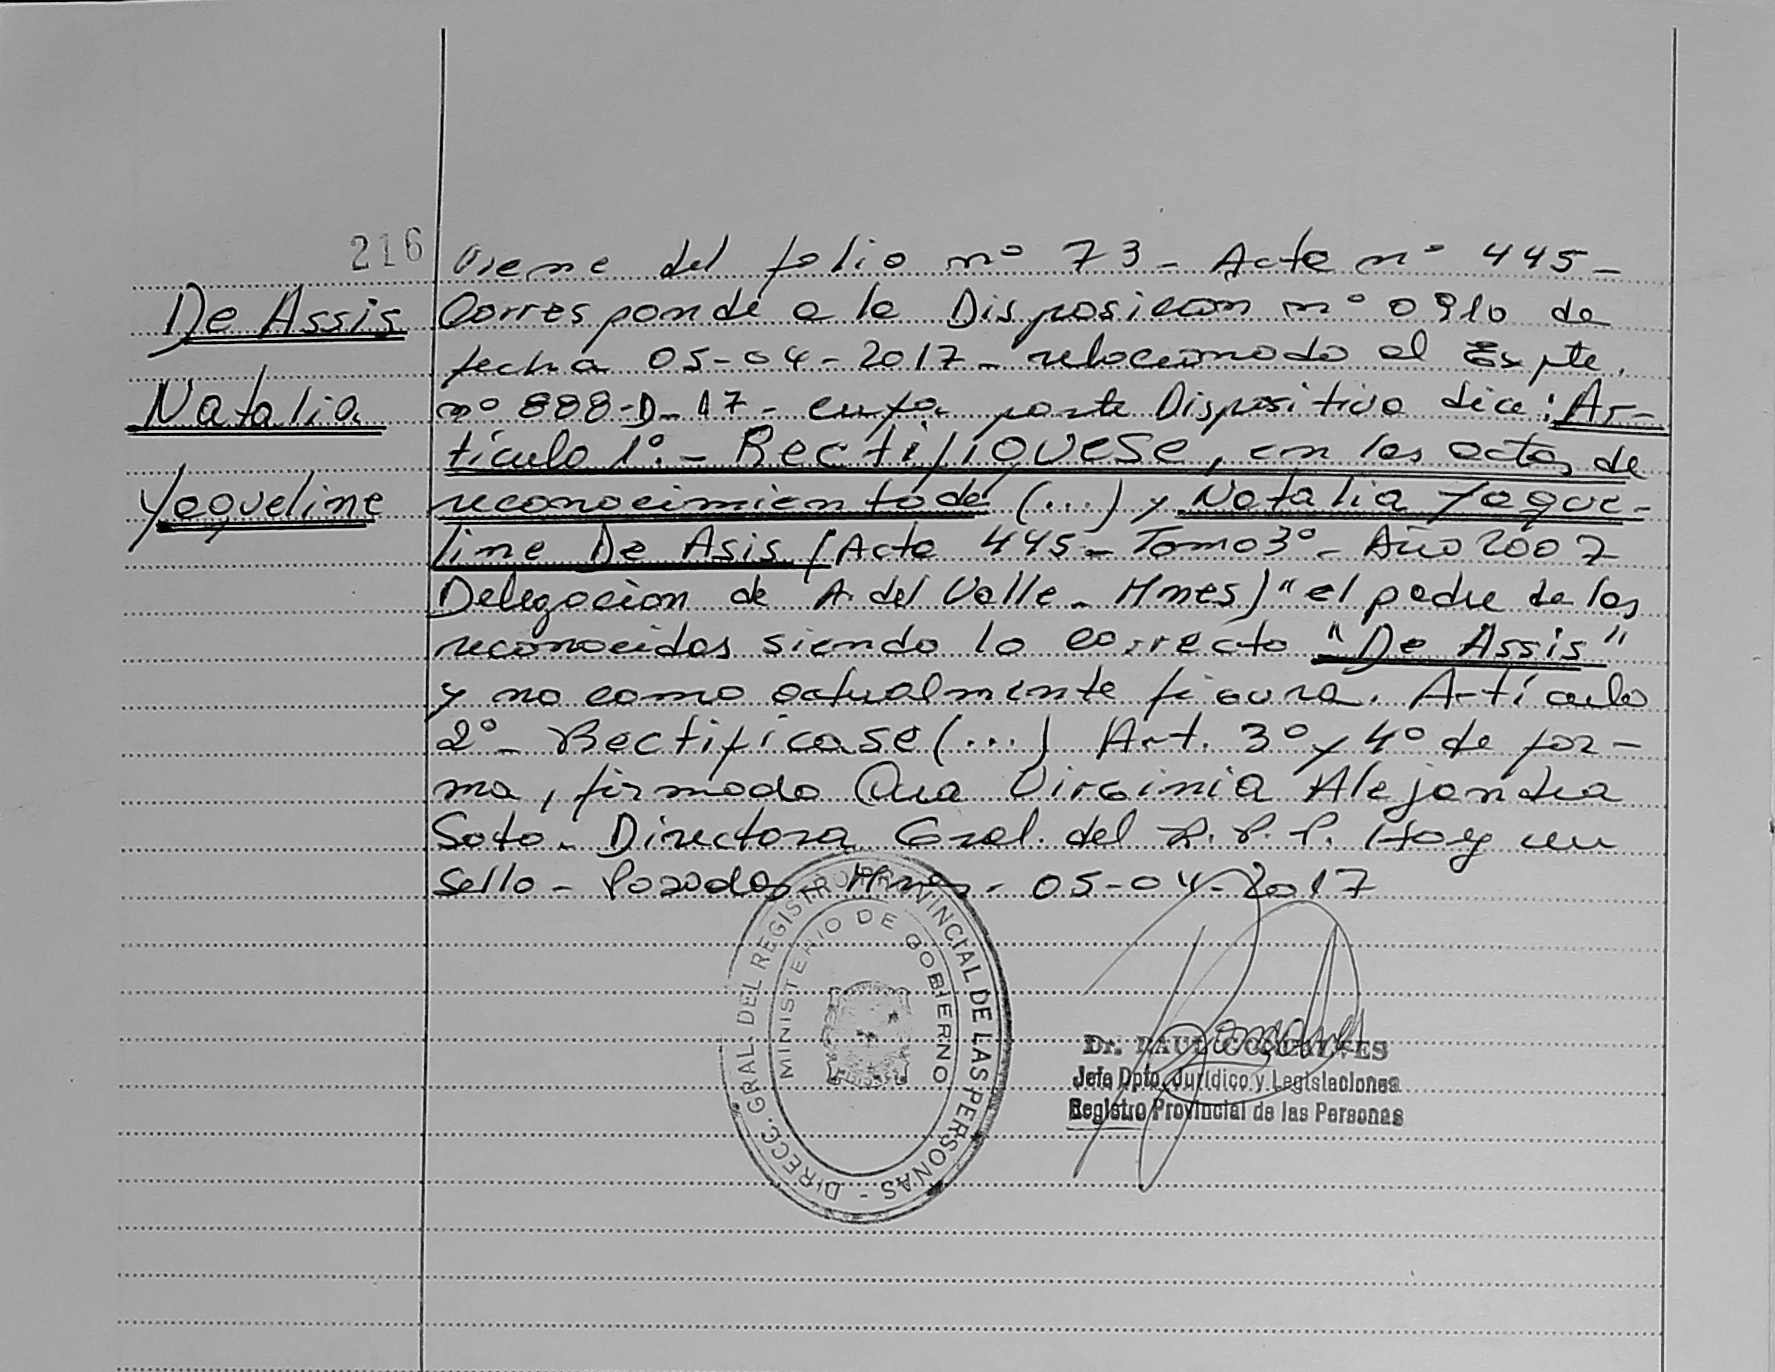 216
De Assis
Natalia
Yaqueline
Viene del folio nº 73 - Acta nº 445 -
Corresponde a la Disposicion nº 0910 de
fecha 05-04-2017 - relacionado al Expte.
nº 888-D-17 - cuya parte Dispositiva dice: Ar-
tículo 1º. - Rectifíquese, en las actas de
reconocimiento de (...) y Natalia Yaque-
line De Asis (Acta 445 - Tomo 3º - Año 2007
Delegacion de A. del Valle - Mnes) " el padre de los
reconocidos siendo lo correcto "De Assis"
y no como actualmente figura. Artículo
2º - Rectificase (...) Art. 3º y 4º de for-
ma, firmado Dra Virginia Alejandra
Soto. Directora Gral. del R. P. P. Hay un
sello - Posadas - Mnes - 05-04-2017
DIRECC. GRAL. DEL REGISTRO PROVINCIAL DE LAS PERSONAS -
MINISTERIO DE GOBIERNO
Dr. RAUL
Jefe Dpto. Jurídico y Legislaciones
Registro Provincial de las Personas